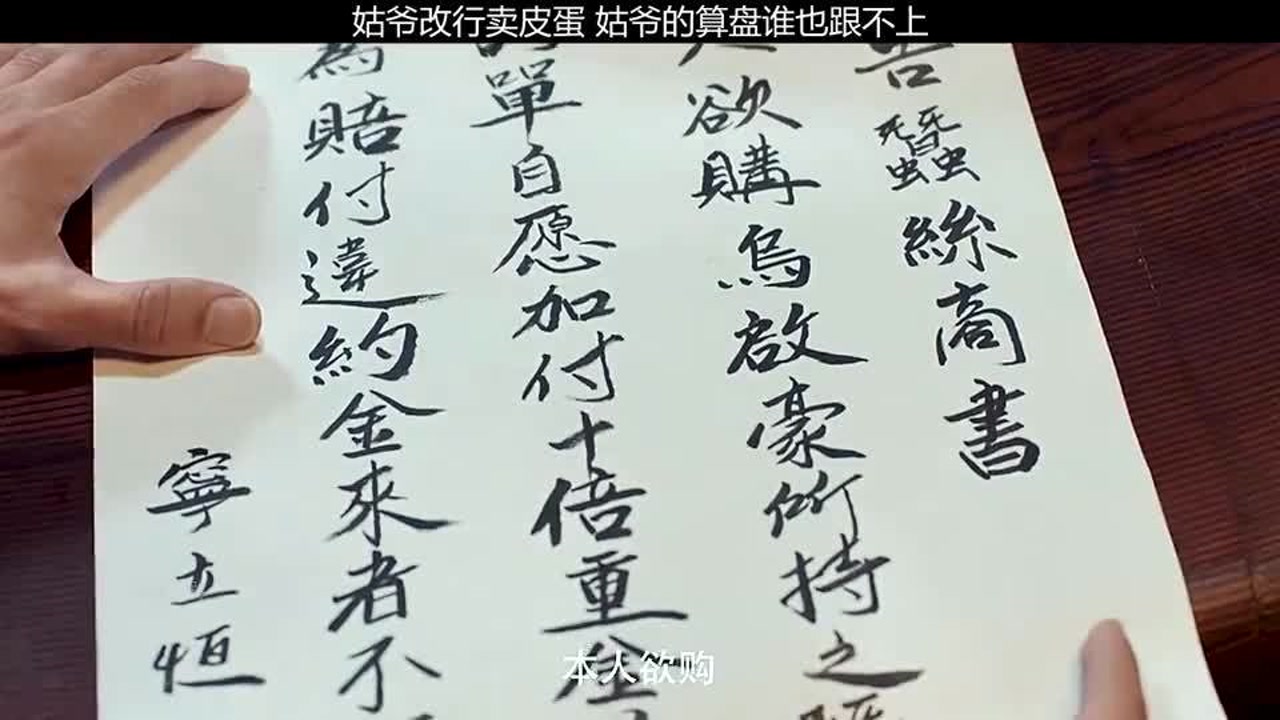 姑爷改行卖皮蛋 姑爷的算盘谁也跟不上
蠶絲商書
欲購烏啟豪所持之
單自愿加付十倍重金
為賠付違約金來者不
寧立恒
本人欲购